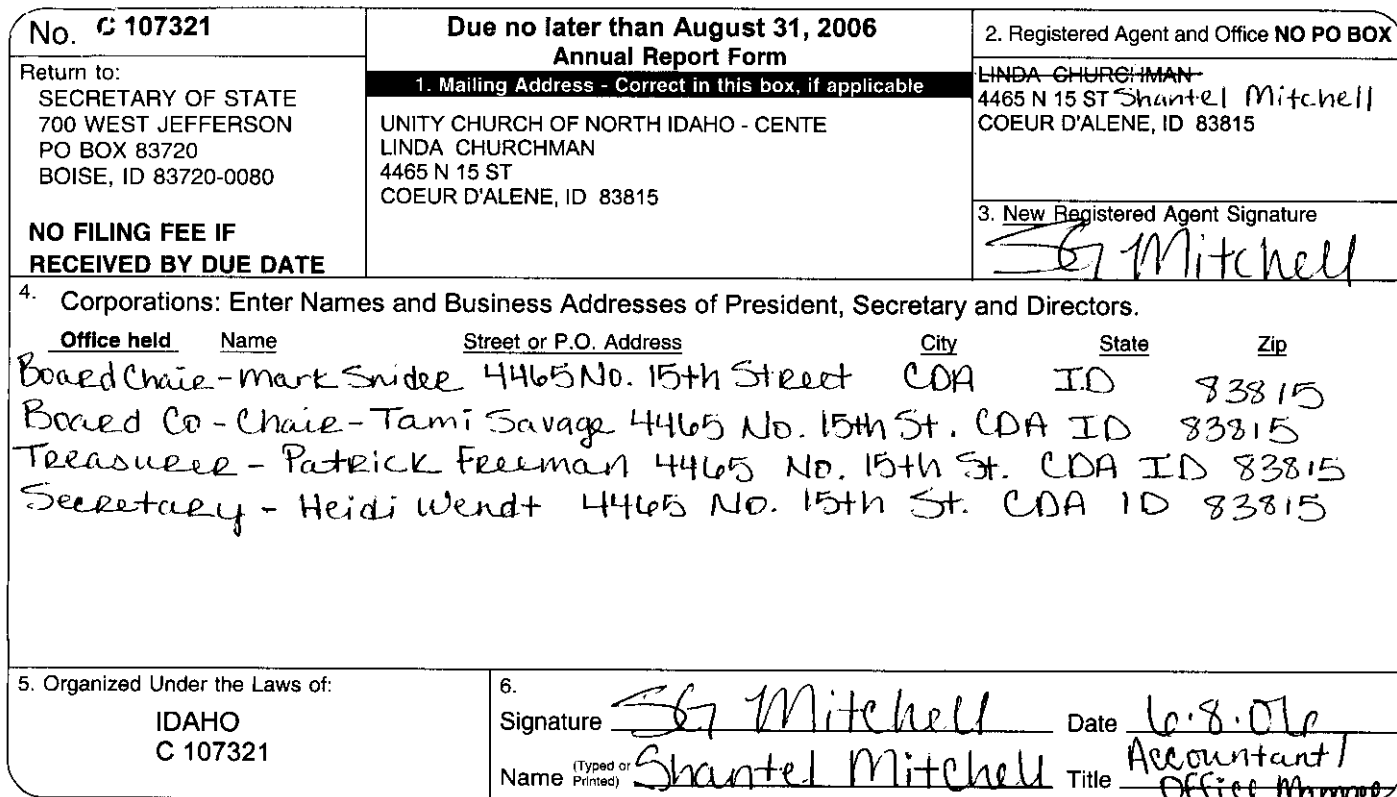 No. C 107321
Return to:
SECRETARY OF STATE
700 WEST JEFFERSON
PO BOX 83720
BOISE, ID 83720-0080
NO FILING FEE IF
RECEIVED BY DUE DATE
Due no later than August 31, 2006
Annual Report Form
1. Mailing Address - Correct in this box, if applicable
UNITY CHURCH OF NORTH IDAHO - CENTE
LINDA CHURCHMAN
4465 N 15 ST
COEUR D'ALENE, ID 83815
2. Registered Agent and Office NO PO BOX
LINDA CHURCHMAN
4465 N 15 ST Shantel Mitchell
COEUR D'ALENE, ID 83815
3. New Registered Agent Signature
SG Mitchell
4. Corporations: Enter Names and Business Addresses of President, Secretary and Directors.
Office held Name Street or P.O. Address City State Zip
Board Chair - Mark Snider 4465 No. 15th Street CDA ID 83815
Board Co-Chair - Tami Savage 4465 No. 15th St. CDA ID 83815
Treasurer - Patrick Freeman 4465 No. 15th St. CDA ID 83815
Secretary - Heidi Wendt 4465 No. 15th St. CDA ID 83815
5. Organized Under the Laws of:
IDAHO
C 107321
6.
Signature SG Mitchell Date 6.8.06
Name (Typed or Printed) Shantel Mitchell Title Accountant/
Office